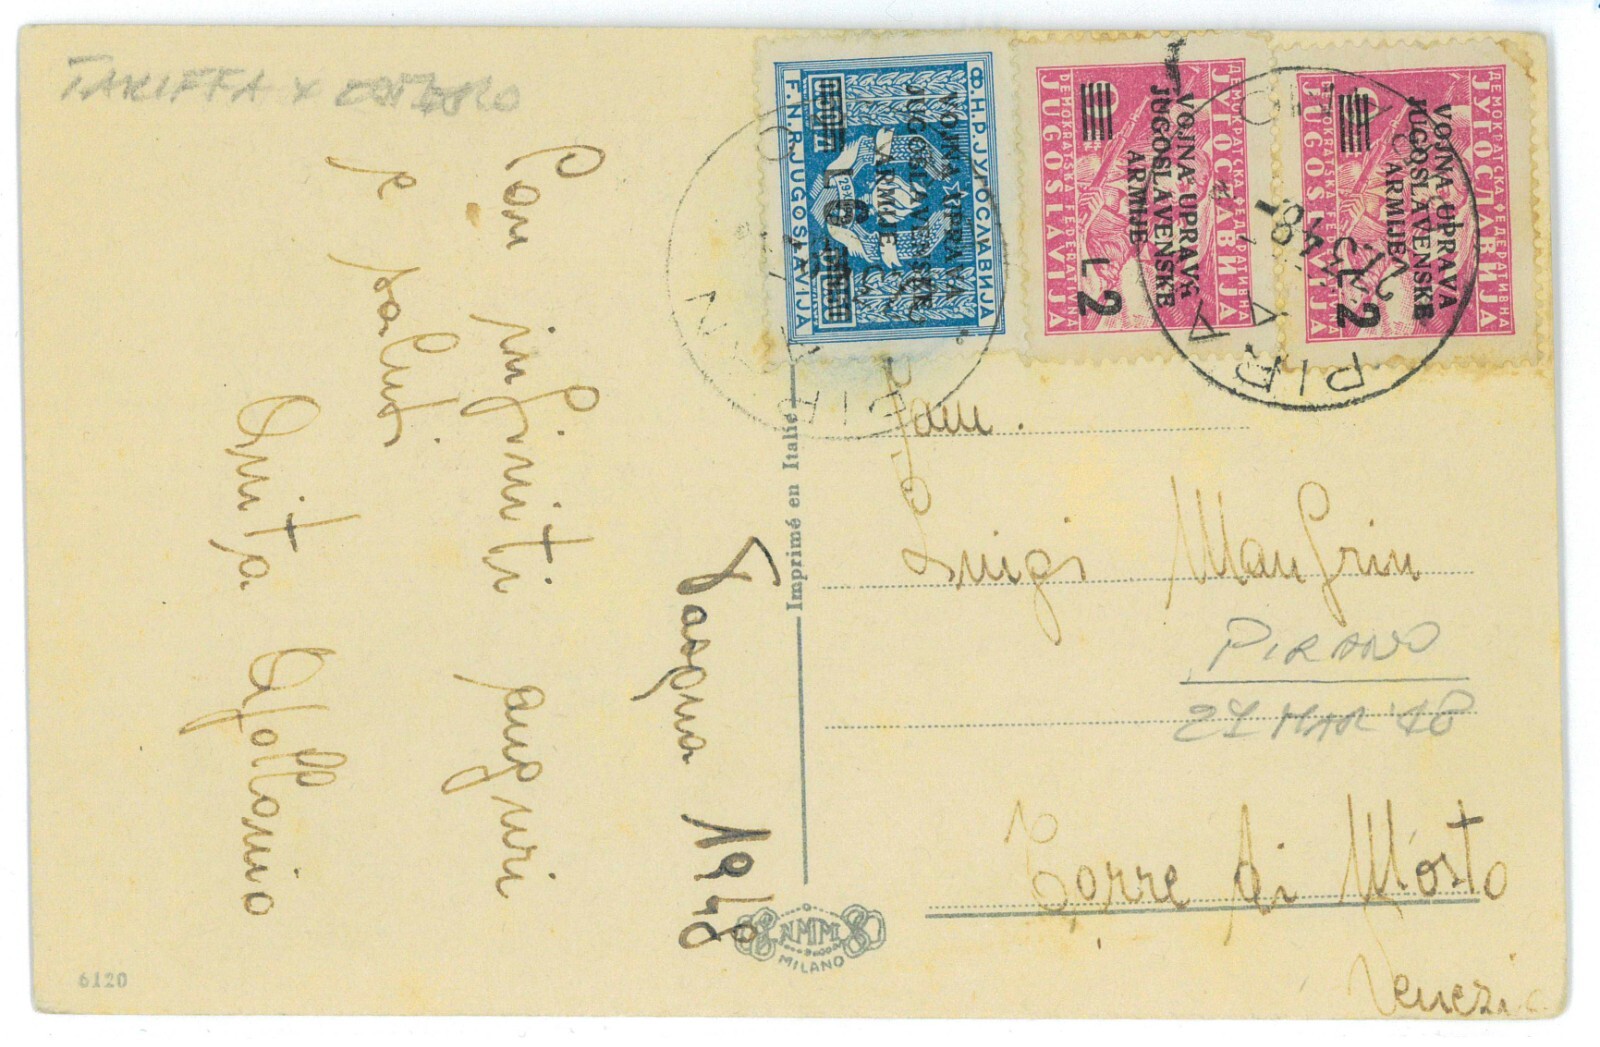 TARIFFA X ESTERO
Con infiniti auguri
e saluti
Anita Apollonio
Pasqua 1948
6120
Imprimé en Italie
NMM
MILANO
Ф.Н.Р.ЈУГОСЛАВИЈА
VOJNA UPRAVA
JUGOSLAVENSKE
ARMIJE
L 6
29·XI·
F.N.R.JUGOSLAVIJA
ДЕМОКРАТСКА ФЕДЕРАТИВНА
ЈУГОСЛАВИЈА
VOJNA UPRAVA
JUGOSLAVENSKE
ARMIJE
L 2
DEMOKRATSKA FEDERATIVNA
JUGOSLAVIJA
ДЕМОКРАТСКА ФЕДЕРАТИВНА
ЈУГОСЛАВИЈА
VOJNA UPRAVA
JUGOSLAVENSKE
ARMIJE
L 2
DEMOKRATSKA FEDERATIVNA
JUGOSLAVIJA
PIRAN
PIRA
48
Fam.
Luigi Manfrin
PIRANO
27 MAR '48
Torre di Mosto
Venezia